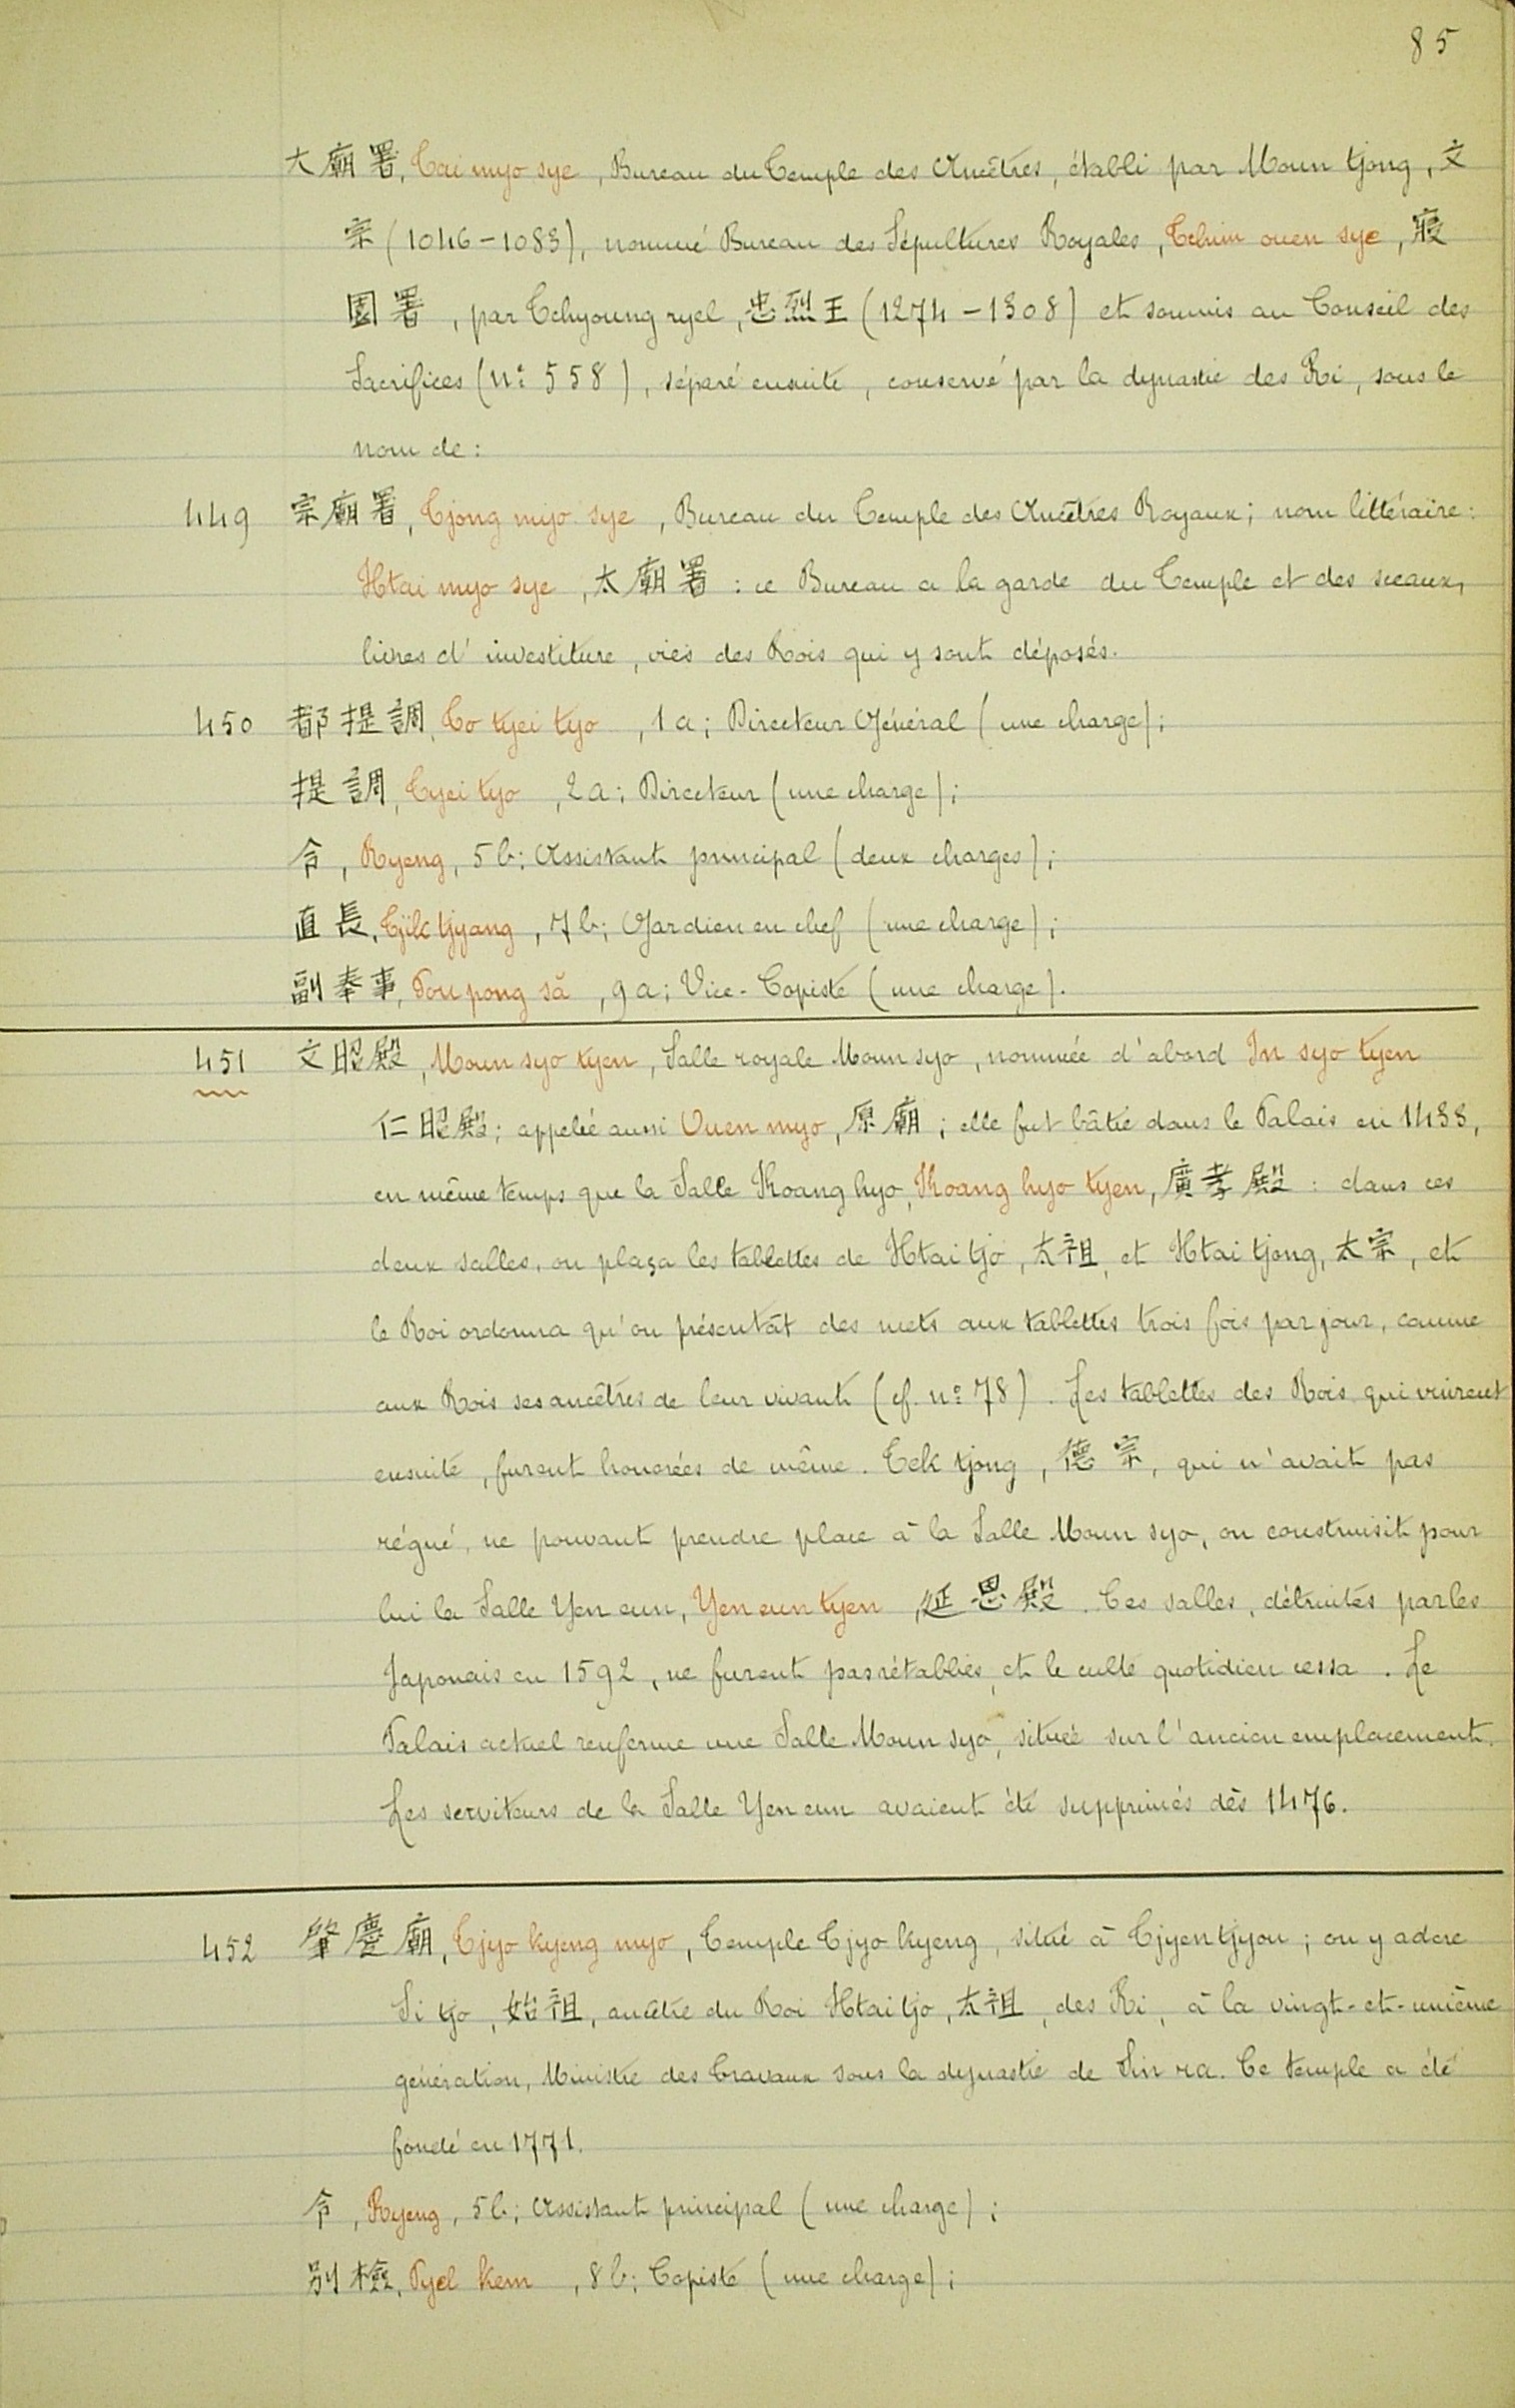 85
大廟署, Tai myo sye, Bureau du Temple des Ancêtres, établi par Moun tjong, 文
宗 (1046-1083), nommé Bureau des Sépultures Royales, Tchim ouen sye, 寢
園署, par Tchyoung ryel, 忠烈王 (1274-1308) et soumis au Conseil des
Sacrifices (n° 558), séparé ensuite, conservé par la dynastie des Ri, sous le
nom de:
449 宗廟署, Tjong myo sye, Bureau du Temple des Ancêtres Royaux; nom littéraire:
Htai myo sye, 太廟署: ce Bureau a la garde du Temple et des sceaux,
livres d'investiture, vies des Rois qui y sont déposés.
450 都提調, To tjei tyo, 1a; Directeur Général (une charge);
提調, Tyei tyo, 2a; Directeur (une charge);
令, Ryeng, 5b; Assistant principal (deux charges);
直長, Tjik tjyang, 7b; Gardien en chef (une charge);
副奉事, Pou pong să, 9a; Vice-Copiste (une charge).
451 文昭殿, Moun syo tyen, Salle royale Moun syo, nommée d'abord In syo tyen
仁昭殿; appelée aussi Ouen myo, 原廟; elle fut bâtie dans le Palais en 1433,
en même temps que la Salle Koang hyo, Koang hyo tyen, 廣孝殿: dans ces
deux salles, on plaça les tablettes de Htai tjo, 太祖, et Htai tjong, 太宗, et
le Roi ordonna qu'on présentât des mets aux tablettes trois fois par jour, comme
aux Rois ses ancêtres de leur vivant (cf. n° 78). Les tablettes des Rois qui vinrent
ensuite, furent honorées de même. Tek tjong, 德宗, qui n'avait pas
régné, ne pouvant prendre place à la Salle Moun syo, on construisit pour
lui la Salle Yen eun, Yen eun tyen, 延恩殿. Ces salles, détruites par les
Japonais en 1592, ne furent pas rétablies, et le culte quotidien cessa. Le
Palais actuel renferme une Salle Moun syo, située sur l'ancien emplacement.
Les serviteurs de la Salle Yen eun avaient été supprimés dès 1476.
452 肇慶廟, Tjyo kyeng myo, Temple Tjyo kyeng, situé à Tjyen tjyou; on y adore
Si tjo, 始祖, ancêtre du Roi Htai tjo, 太祖, des Ri, à la vingt-et-unième
génération, Ministre des Travaux sous la dynastie de Sin ra. Ce temple a été
fondé en 1771.
令, Ryeng, 5b; Assistant principal (une charge);
別檢, Pyel kem, 8b; Copiste (une charge);